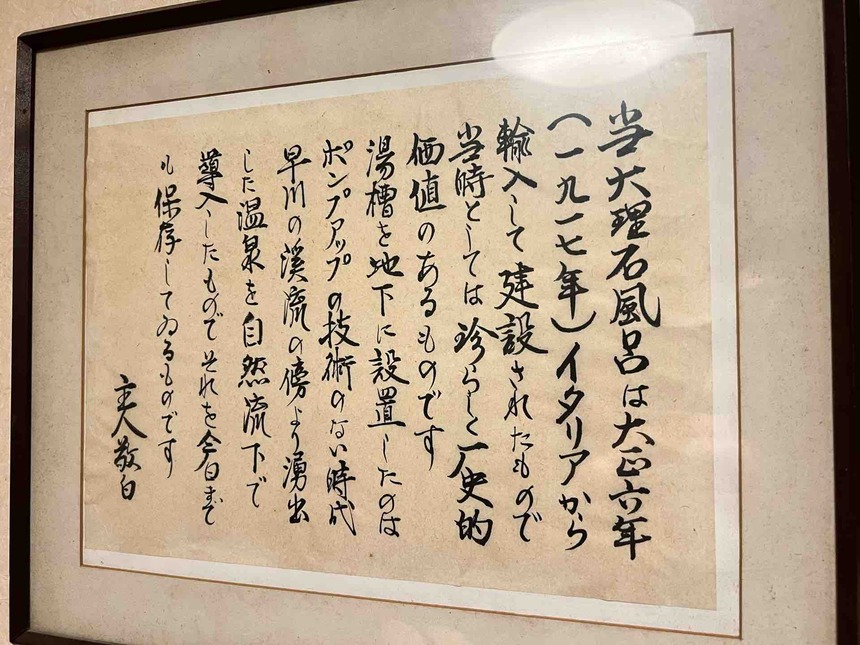 当大理石風呂は大正六年
(一九一七年)イタリアから
輸入して建設されたもので
当時としては珍らしく歴史的
価値のあるものです
湯槽を地下に設置したのは
ポンプアップの技術のない時代
早川の渓流の傍より湧出
した温泉を自然流下で
導入したものでそれを今日まで
も保存してゐるものです
主人敬白